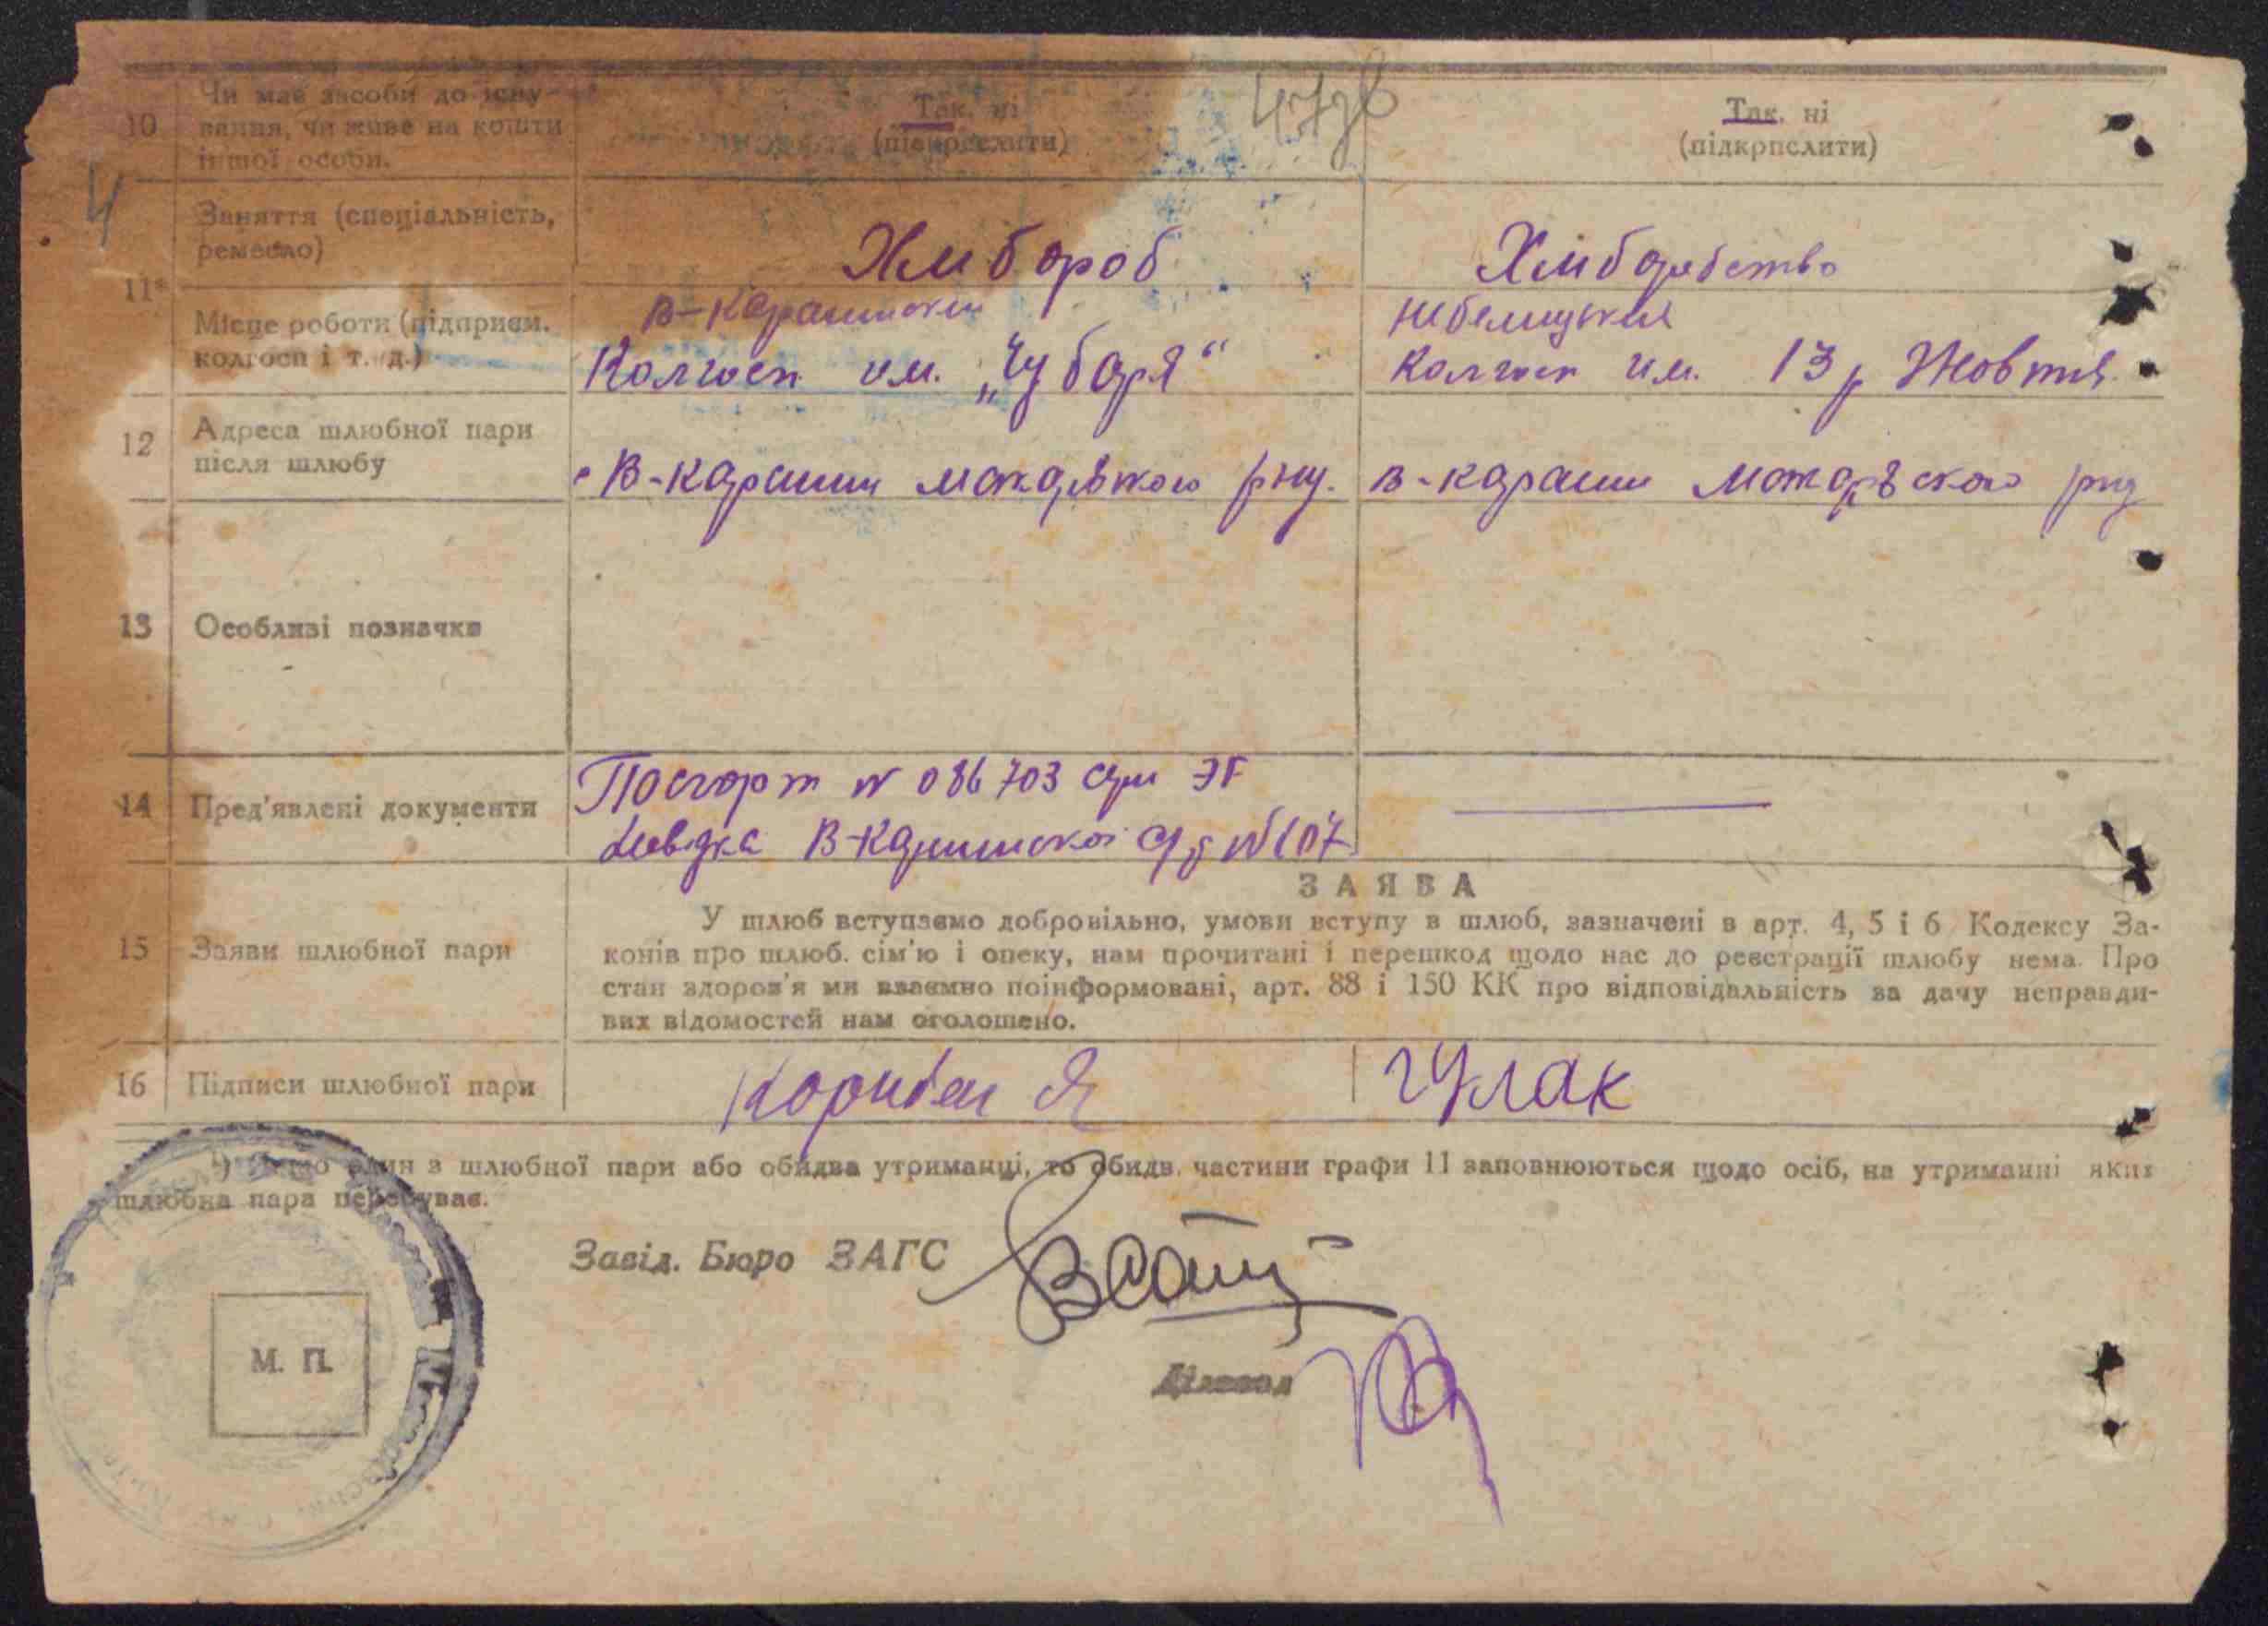 47зв
10 Чи має засоби до існу-
вання, чи живе на кошти
іншої особи.
Так, ні
(підкреслити)
Так, ні
(підкрпслити)
4
11*
Заняття (спеціальність,
ремесло)
Хлибороб
Хлиборобство
Місце роботи (підприєм.
колгосп і т. д.)
В-Карашинский
Колгосп им. „Чубаря“
Небелицький
Колгосп им. 13 р Жовтня.
12 Адреса шлюбної пари
після шлюбу
с В-Карашин Макарівкого рну.
в-караши Макарівского рну
13 Особливі позначки
14 Пред'явлені документи
Поспорт N 086703 сери ЭГ
Довідка В-Карашинскої с/р N 107
15 Заяви шлюбної пари
ЗАЯВА
У шлюб вступаємо добровільно, умови вступу в шлюб, зазначені в арт. 4, 5 і 6 Кодексу За-
конів про шлюб. сім'ю і опеку, нам прочитані і перешкод щодо нас до реєстрації шлюбу нема. Про
стан здоров'я ми взаємно поінформовані, арт. 88 і 150 КК про відповідальність за дачу неправди-
вих відомостей нам оголошено.
16 Підписи шлюбної пари
Я
гулак
*) Якщо один з шлюбної пари або обидва утриманці, то обидв. частини графи 11 заповнюються щодо осіб, на утриманні яких
шлюбна пара перебуває.
Завід. Бюро ЗАГС
М. П.
Діловод